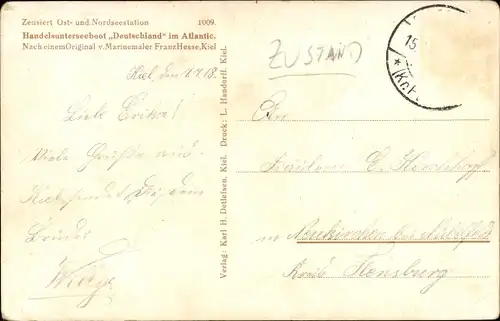 Zensiert Ost- und Nordseestation 1009.
Handelsunterseeboot „Deutschland" im Atlantic.
Nach einem Original v. Marinemaler Franz Hesse, Kiel
Kiel, den 1.4.18.
Liebe Erika!
Viele Grüße aus
Kiel sendet Dir Dein
Bruder
Verlag: Karl H. Detlefsen, Kiel. Druck: L. Handorff, Kiel.
ZUSTAND
15
An
Fräulein E.
in Neukirchen bei
Kreis Flensburg